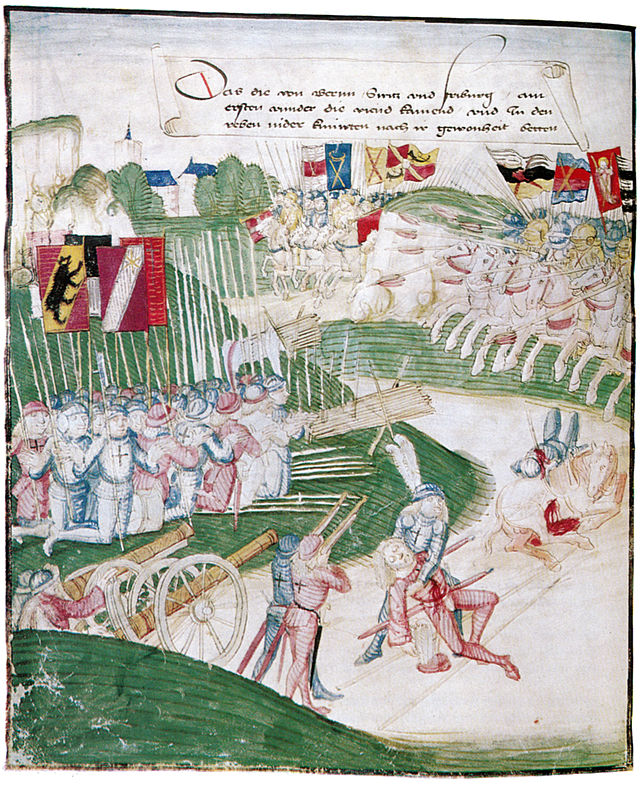 Das die von Bernn / Switz vnd friburg / am
ersten vnnder die viend kamend / vnd In den
reben nider knuwten nach ir gewonheit betten